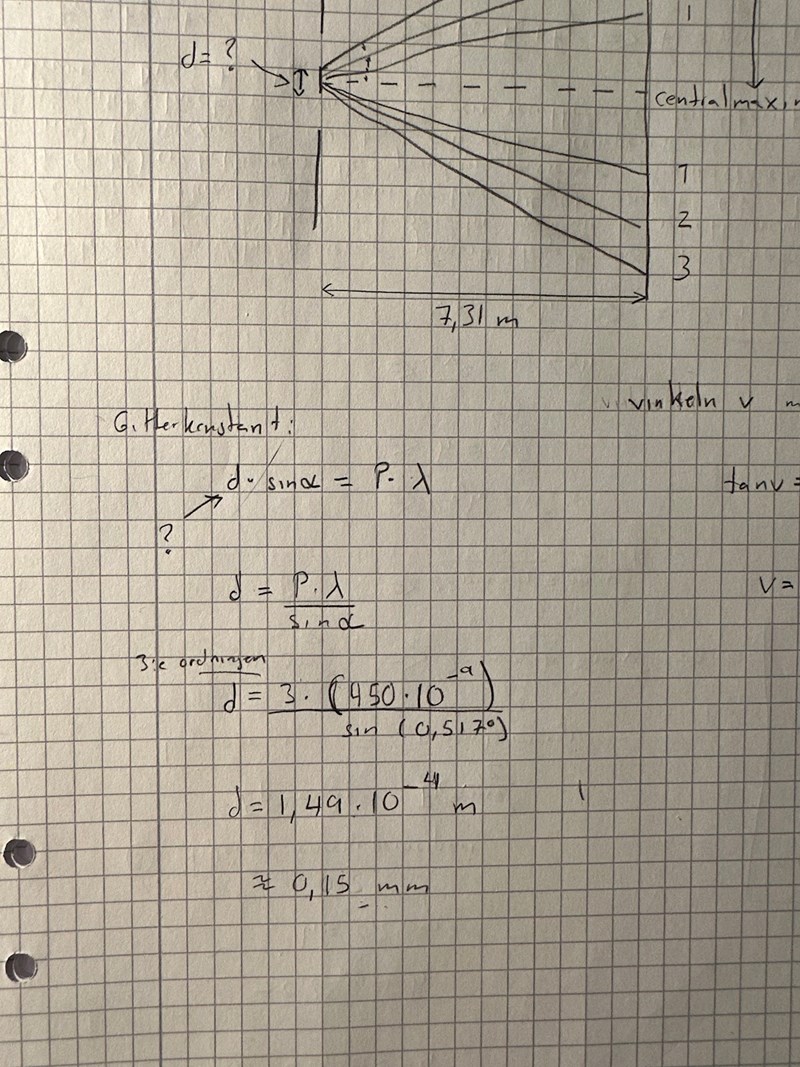 1
d = ?
centralmax,
1
2
3
7,31 m
vinkeln v
Gitterkonstant:
d · sinα = P · λ
tanv =
?
d = P·λ / sinα
V =
3:e ordningen
d = 3 · (450·10^-9) / sin (0,517°)
d = 1,49 · 10^-4 m
≈ 0,15 mm